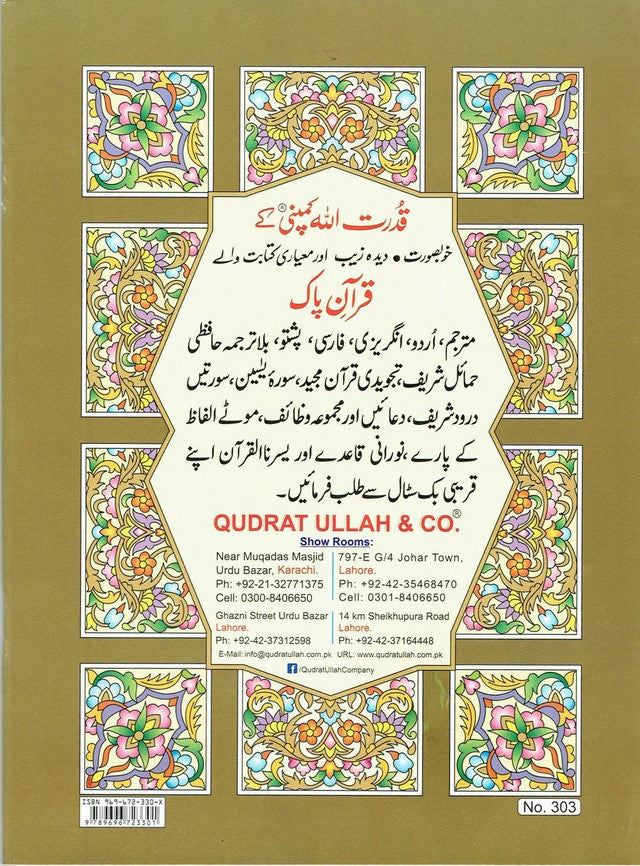 قُدرت اللہ کمپنی® کے
خوبصورت • دیدہ زیب اور معیاری کتابت والے
قرآنِ پاک
مترجم، اُردو، انگریزی، فارسی، پشتو، بلاترجمہ حافظی
حمائل شریف، تجویدی قرآن مجید، سورۂ یٰسین، سورتیں
درود شریف، دعائیں اور مجموعہ وظائف، موٹے الفاظ
کے پارے، نورانی قاعدے اور یسرنا القرآن اپنے
قریبی بک سٹال سے طلب فرمائیں۔
QUDRAT ULLAH & CO.®
Show Rooms:
Near Muqadas Masjid
Urdu Bazar, Karachi.
Ph: +92-21-32771375
Cell: 0300-8406650
797-E G/4 Johar Town,
Lahore.
Ph: +92-42-35468470
Cell: 0301-8406650
Ghazni Street Urdu Bazar
Lahore.
Ph: +92-42-37312598
14 km Sheikhupura Road
Lahore.
Ph: +92-42-37164448
E-Mail: info@qudratullah.com.pk URL: www.qudratullah.com.pk
f /QudratUllahCompany
ISBN 969-672-330-X
9 789696 723301
No. 303